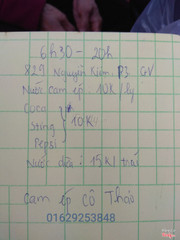 6h30 - 20h
829 Nguyễn Kiệm. P3 GV
Nước cam ép 10K / ly
Coca
Sting } 10K
Pepsi
Nước dừa : 15K / trái
Cam ép Cô Thảo
01629253848